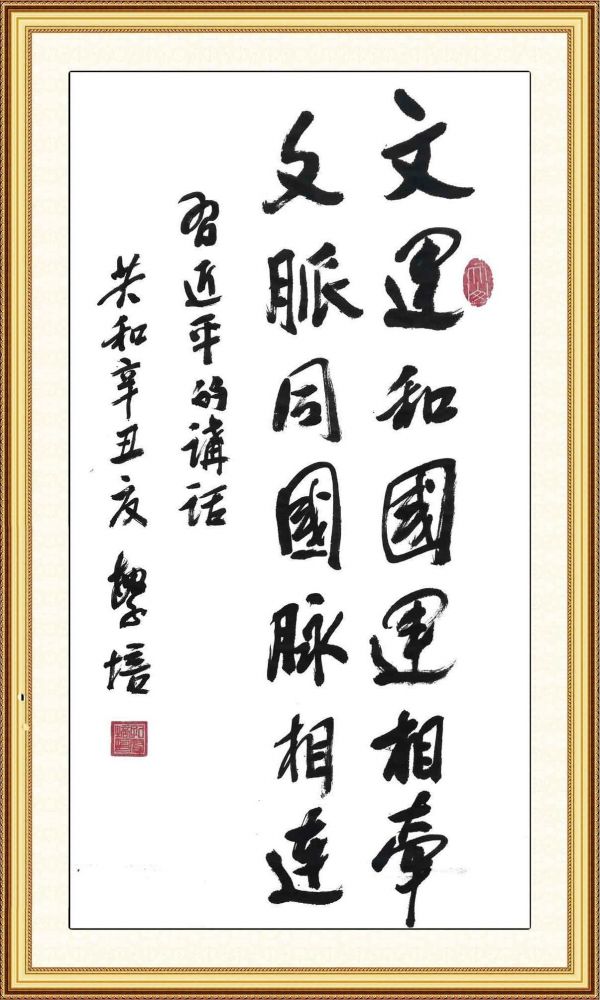 文運和國運相牽
文脈同國脉相連
習近平的講話
共和辛丑夏 學培